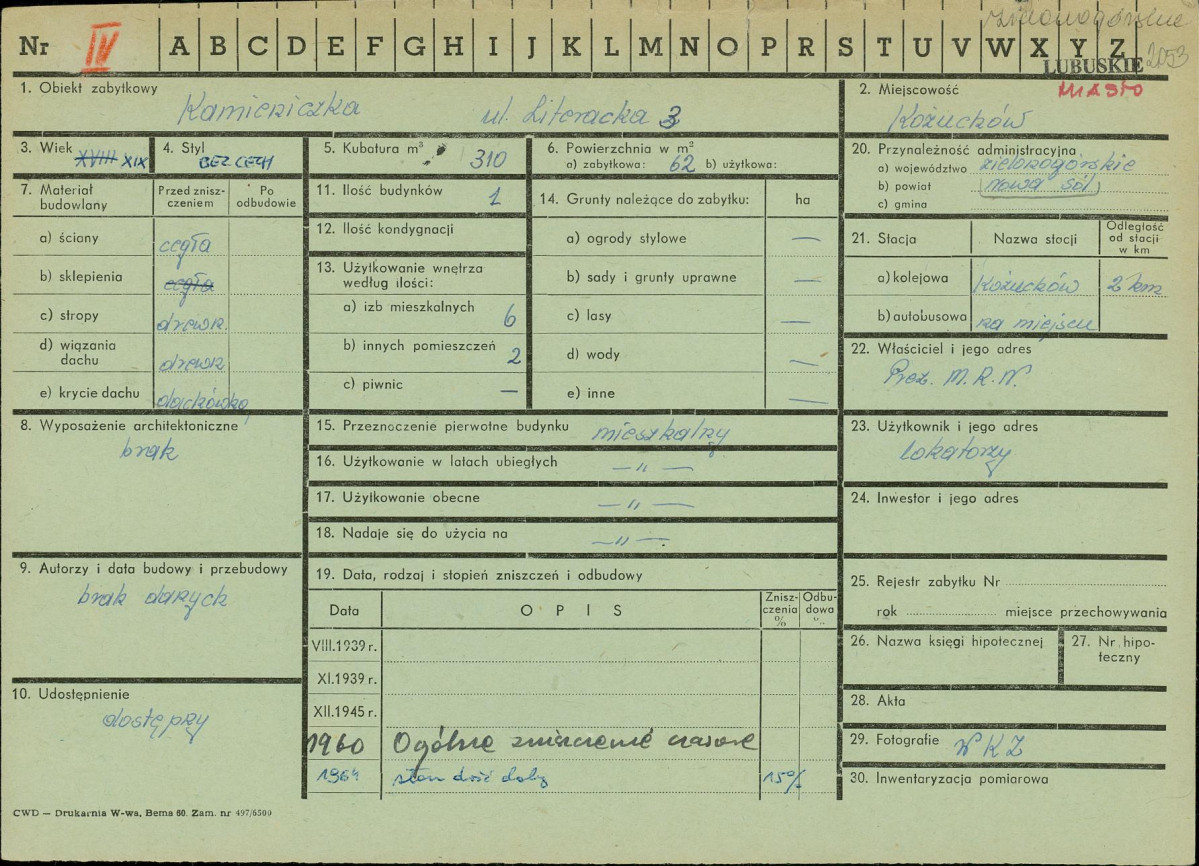 zielonogórskie
Nr IV A B C D E F G H I J K L M N O P R S T U V W X Y Z 2053
LUBUSKIE
1. Obiekt zabytkowy Kamieniczka ul. Literacka 3
2. Miejscowość MIASTO
Kożuchów
3. Wiek XVIII XIX
4. Styl BEZ CECH
5. Kubatura m³ 310
6. Powierzchnia w m²
a) zabytkowa: 62 b) użytkowa:
20. Przynależność administracyjna
a) województwo zielonogórskie
b) powiat nowa sól
c) gmina
7. Materiał budowlany
Przed zniszczeniem
Po odbudowie
a) ściany cegła
b) sklepienia cegła
c) stropy drewn.
d) wiązania dachu drewn.
e) krycie dachu dachówka
11. Ilość budynków 1
12. Ilość kondygnacji
13. Użytkowanie wnętrza
według ilości:
a) izb mieszkalnych 6
b) innych pomieszczeń 2
c) piwnic —
14. Grunty należące do zabytku: ha
a) ogrody stylowe —
b) sady i grunty uprawne —
c) lasy —
d) wody —
e) inne —
21. Stacja Nazwa stacji Odległość od stacji w km
a) kolejowa Kożuchów 2 km
b) autobusowa na miejscu
22. Właściciel i jego adres
Prez. M.R.N.
8. Wyposażenie architektoniczne
brak
15. Przeznaczenie pierwotne budynku mieszkalny
16. Użytkowanie w latach ubiegłych — " —
17. Użytkowanie obecne — " —
18. Nadaje się do użycia na — " —
23. Użytkownik i jego adres
lokatorzy
24. Inwestor i jego adres
9. Autorzy i data budowy i przebudowy
brak danych
19. Data, rodzaj i stopień zniszczeń i odbudowy
Data O P I S Zniszczenia % Odbudowa %
VIII.1939 r.
XI.1939 r.
XII.1945 r.
1960 Ogólne zniszczenie czasowe
1964 stan dość dobry 15%
25. Rejestr zabytku Nr
rok miejsce przechowywania
26. Nazwa księgi hipotecznej
27. Nr hipoteczny
10. Udostępnienie
dostępny
28. Akta
29. Fotografie WKZ
30. Inwentaryzacja pomiarowa
CWD — Drukarnia W-wa, Bema 60. Zam. nr 497/6500